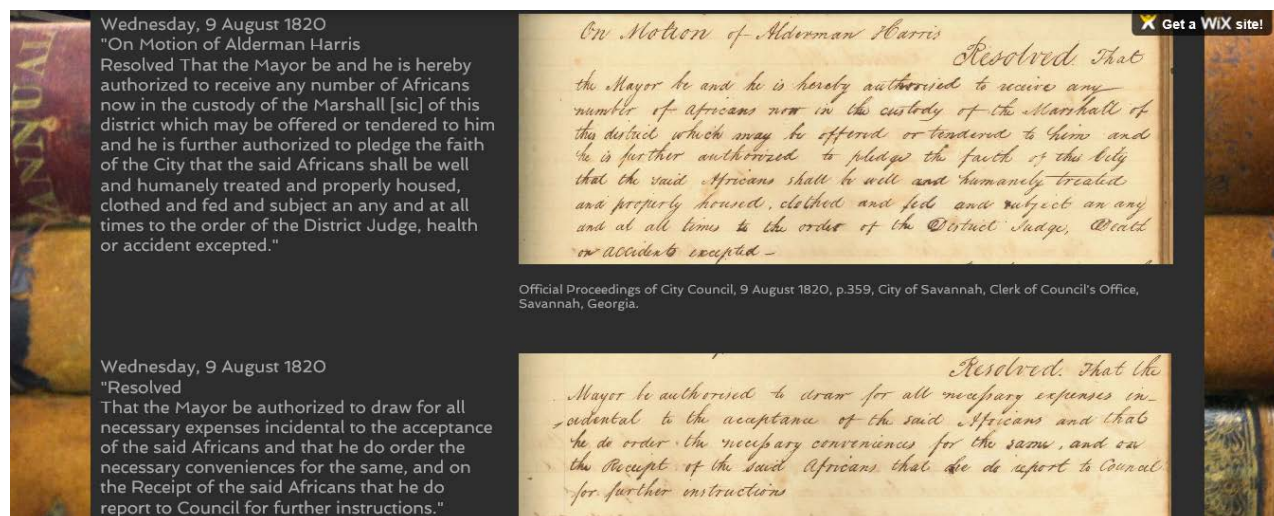 Get a WiX site!
Wednesday, 9 August 1820
"On Motion of Alderman Harris
Resolved That the Mayor be and he is hereby
authorized to receive any number of Africans
now in the custody of the Marshall [sic] of this
district which may be offered or tendered to him
and he is further authorized to pledge the faith
of the City that the said Africans shall be well
and humanely treated and properly housed,
clothed and fed and subject an any and at all
times to the order of the District Judge, health
or accident excepted."
On Motion of Alderman Harris
Resolved. That
the Mayor be and he is hereby authorised to receive any
number of Africans now in the custody of the Marshall of
this district which may be offered or tendered to him and
he is further authorized to pledge the faith of this City
that the said Africans shall be well and humanely treated
and properly housed, clothed and fed and subject an any
and at all times to the order of the District Judge, Death
or accidents excepted –
Official Proceedings of City Council, 9 August 1820, p.359, City of Savannah, Clerk of Council's Office,
Savannah, Georgia.
Wednesday, 9 August 1820
"Resolved
That the Mayor be authorized to draw for all
necessary expenses incidental to the acceptance
of the said Africans and that he do order the
necessary conveniences for the same, and on
the Receipt of the said Africans that he do
report to Council for further instructions."
Resolved. That the
Mayor be authorised to draw for all necessary expenses in-
cidental to the acceptance of the said Africans and that
he do order the necessary conveniences for the same, and on
the Receipt of the said Africans that he do report to Council
for further instructions